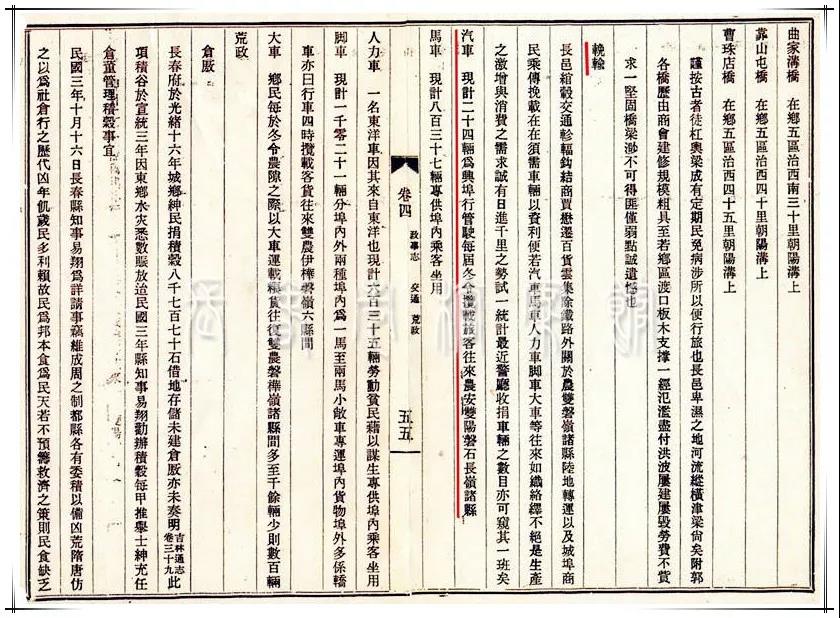 曲家溝橋　在鄉五區治西南三十里朝陽溝上
靠山屯橋　在鄉五區治西四十里朝陽溝上
曹珠店橋　在鄉五區治西四十五里朝陽溝上
謹按古者徒杠輿梁成有定期民免病涉所以便行旅也長邑卑濕之地河流縱橫津梁尙矣附郭
各橋歷由商會建修規模粗具至若鄉區渡口板木支撐一經氾濫盡付洪波屢建屢毀勞費不貲
求一堅固橋梁渺不可得匪僅弱點誠遺憾也
輓輸
長邑綰轂交通軫輻鈎結商賈懋遷百貨雲集除鐵路外關於農雙磐嶺諸縣陸地轉運以及城埠商
民乘傳挽載在在須需車輛以資利便若汽車馬車人力車脚車大車等往來如織絡繹不絕是生產
之激增與消費之需求誠有日進千里之勢試一統計最近警廳收捐車輛之數目亦可窺其一班矣
汽車　現計二十四輛爲興埠行管駛每屆冬令攬載旅客往來農安雙陽磐石長嶺諸縣
馬車　現計八百三十七輛專供埠內乘客坐用
卷四　政事志　交通　荒政　五五
人力車　一名東洋車因其來自東洋也現計六百三十五輛勞動貧民藉以謀生專供埠內乘客坐用
脚車　現計一千零二十一輛分埠內外兩種埠內爲一馬至兩馬小敞車專運埠內貨物埠外多係轎
車亦曰行車四時攬載客貨往來雙農伊樺磐嶺六縣間
大車　鄉民每於冬令農隙之際以大車運載糧貨往復雙農磐樺嶺諸縣間多至千餘輛少則數百輛
荒政
倉厫
長春府於光緖十六年城鄉紳民捐積穀八千七百七十石借地存儲未建倉厫亦未奏明吉林通志卷三十九此
項積谷於宣統三年因東鄉水灾悉數賑放迨民國三年縣知事易翔勸辦積穀每甲推舉士紳充任
倉董管理積穀事宜
民國三年十月十六日長春縣知事易翔爲詳請事竊維成周之制都縣各有委積以備凶荒隋唐仿
之以爲社倉行之歷代凶年飢歲民多利賴故民爲邦本食爲民天若不預籌救濟之策則民食缺乏